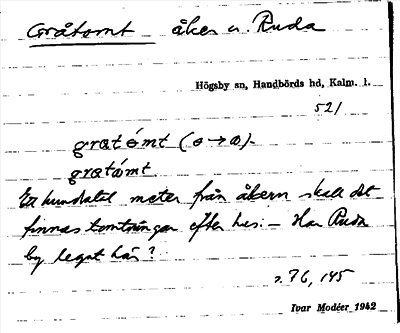 Gråtomt åker u. Ruda
Högsby sn, Handbörds hd, Kalm. l.
521
gratómt (o→ɷ).
gratómt.
Ett hundratal meter från åkern skall det
finnas tomtningar efter hus. – Har Ruda
by legat här?
s. 76, 145
Ivar Modéer 1942